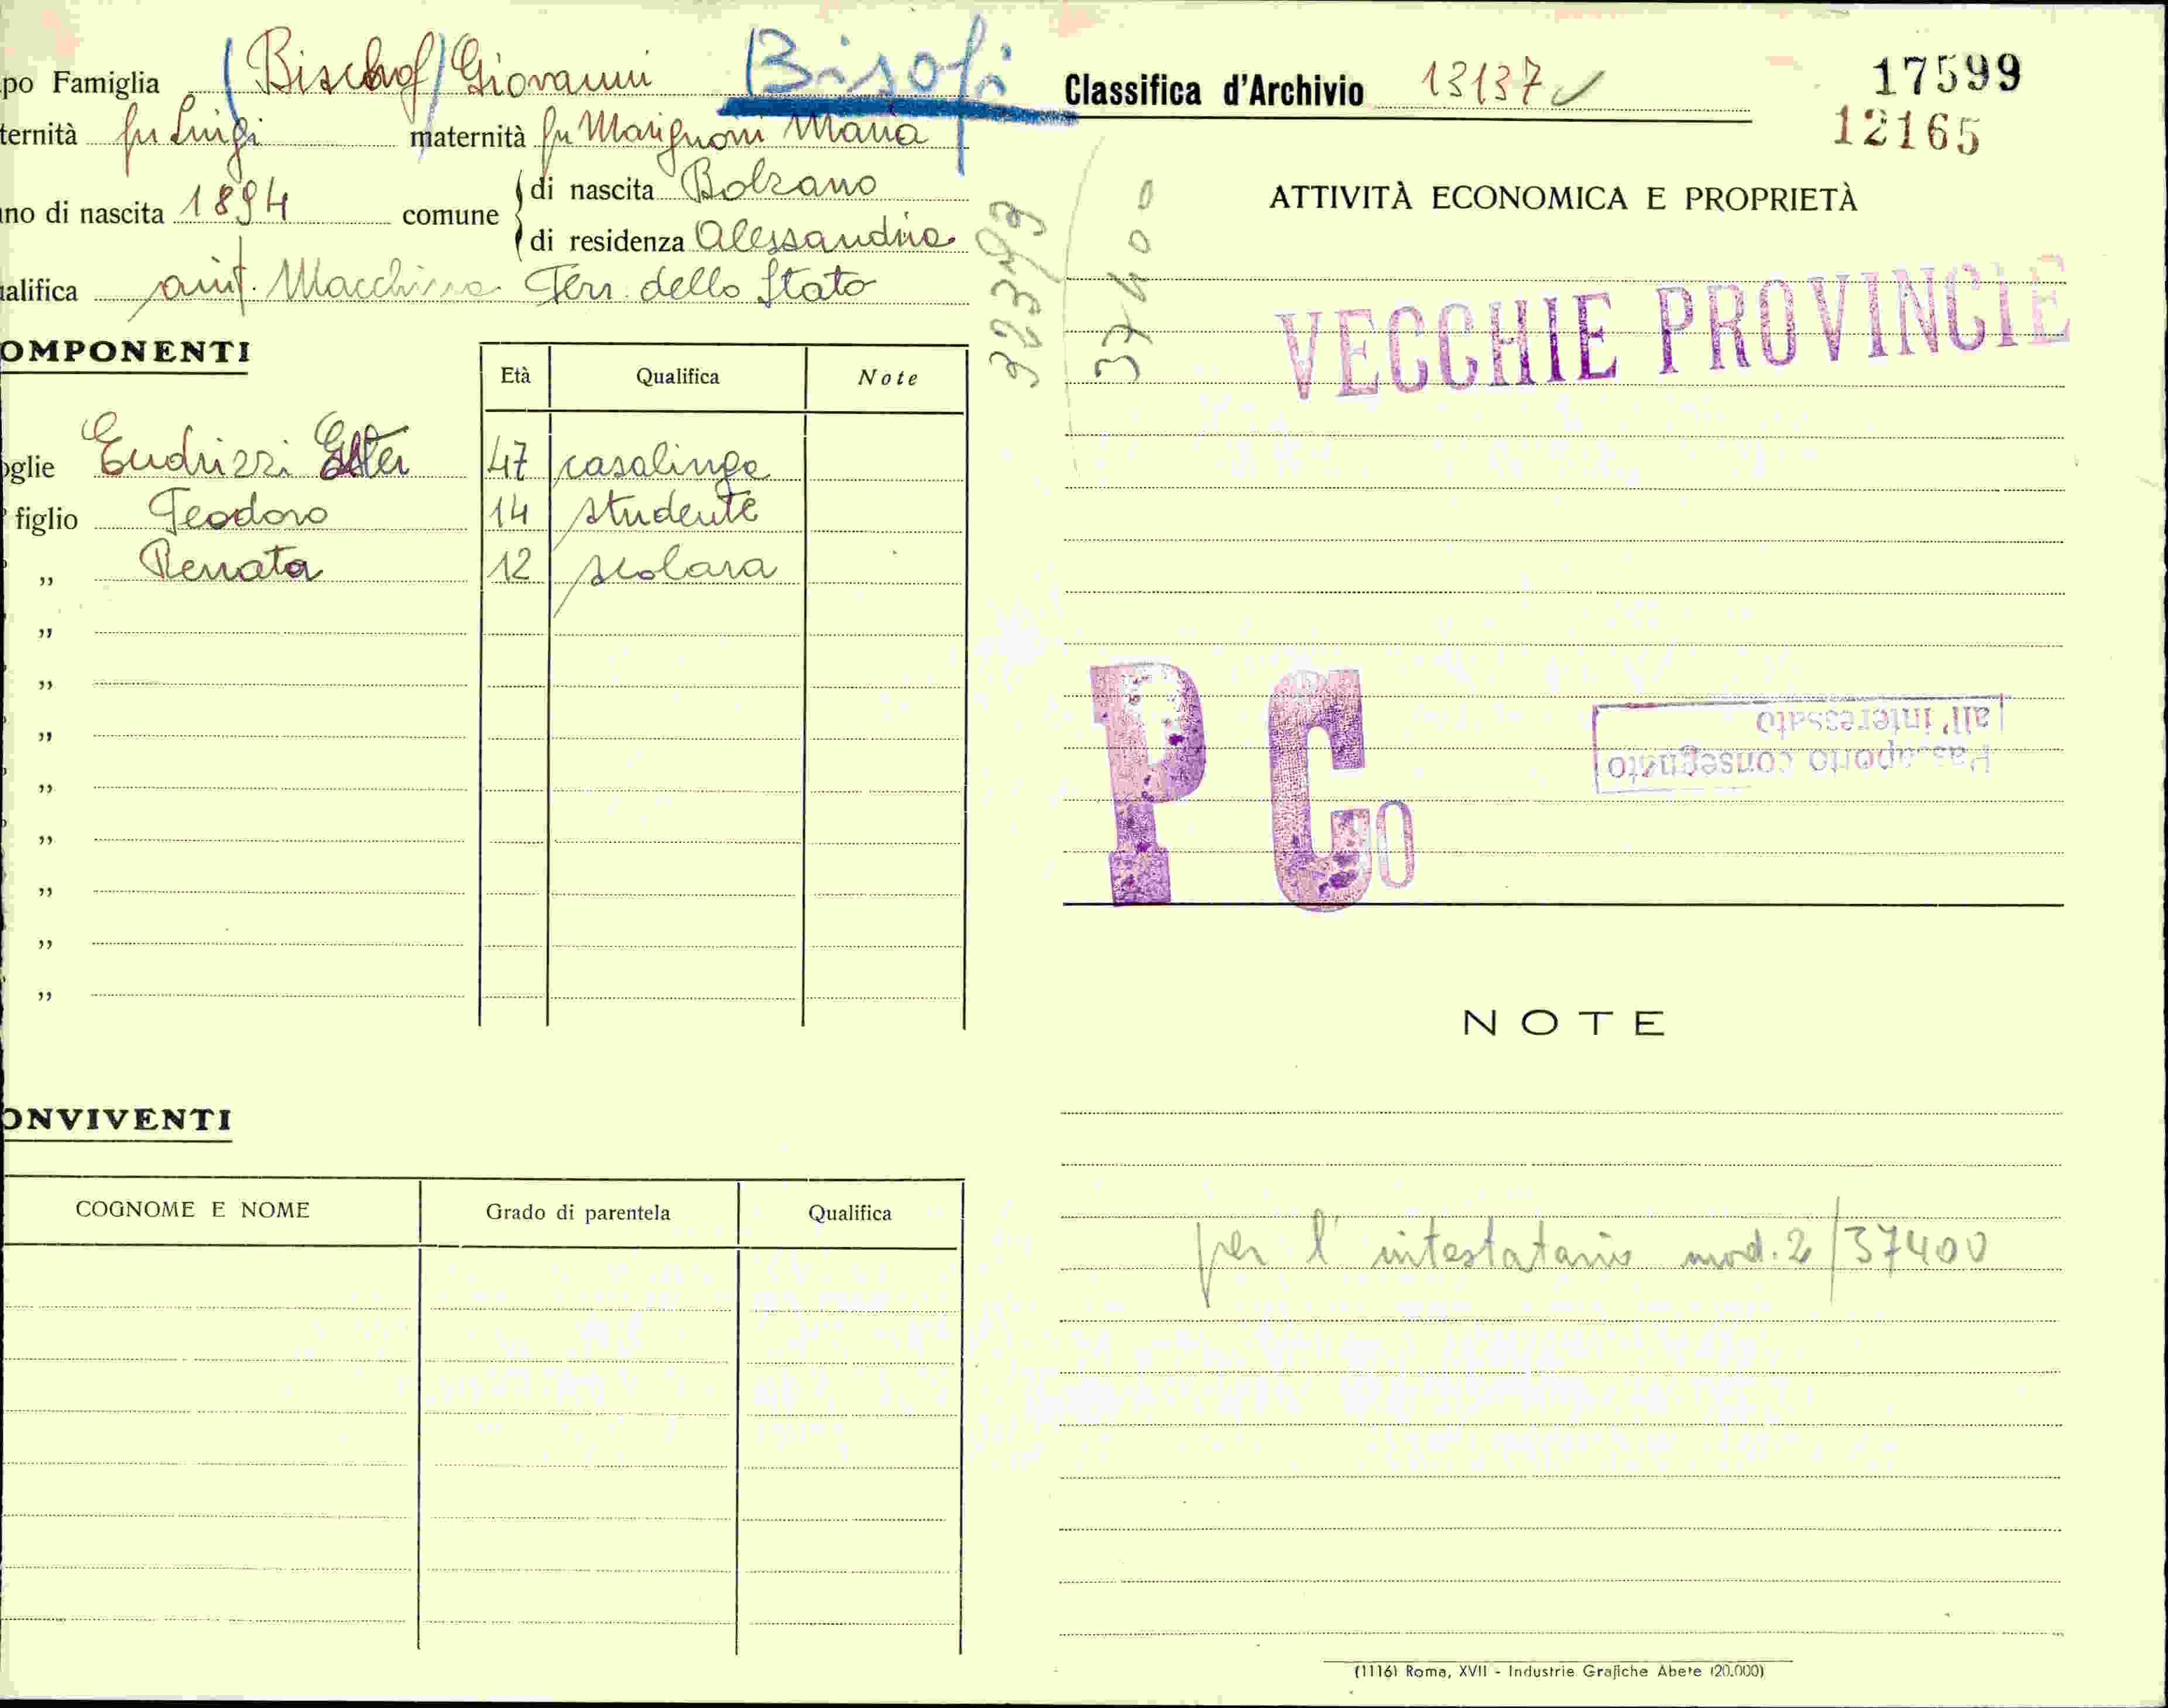 po Famiglia (Bischof) Giovanni Bisofi
ternità fu Luigi maternità fu Marignoni Maria
no di nascita 1894 comune di nascita Bolzano
di residenza Alessandria
alifica aiut. Macchina Ferr. dello Stato
OMPONENTI
Età Qualifica Note
oglie Endrizzi Ester 47 casalinga
figlio Teodoro 14 studente
„ Renata 12 scolara
„
„
„
„
„
„
„
„
ONVIVENTI
COGNOME E NOME Grado di parentela Qualifica
Classifica d'Archivio 13137
17599
12165
37400
ATTIVITÀ ECONOMICA E PROPRIETÀ
VECCHIE PROVINCIE
P C O
Passaporto consegnato
all'interessato
NOTE
per l'intestatario mod. 2/37400
(1116) Roma, XVII - Industrie Grafiche Abete (20.000)